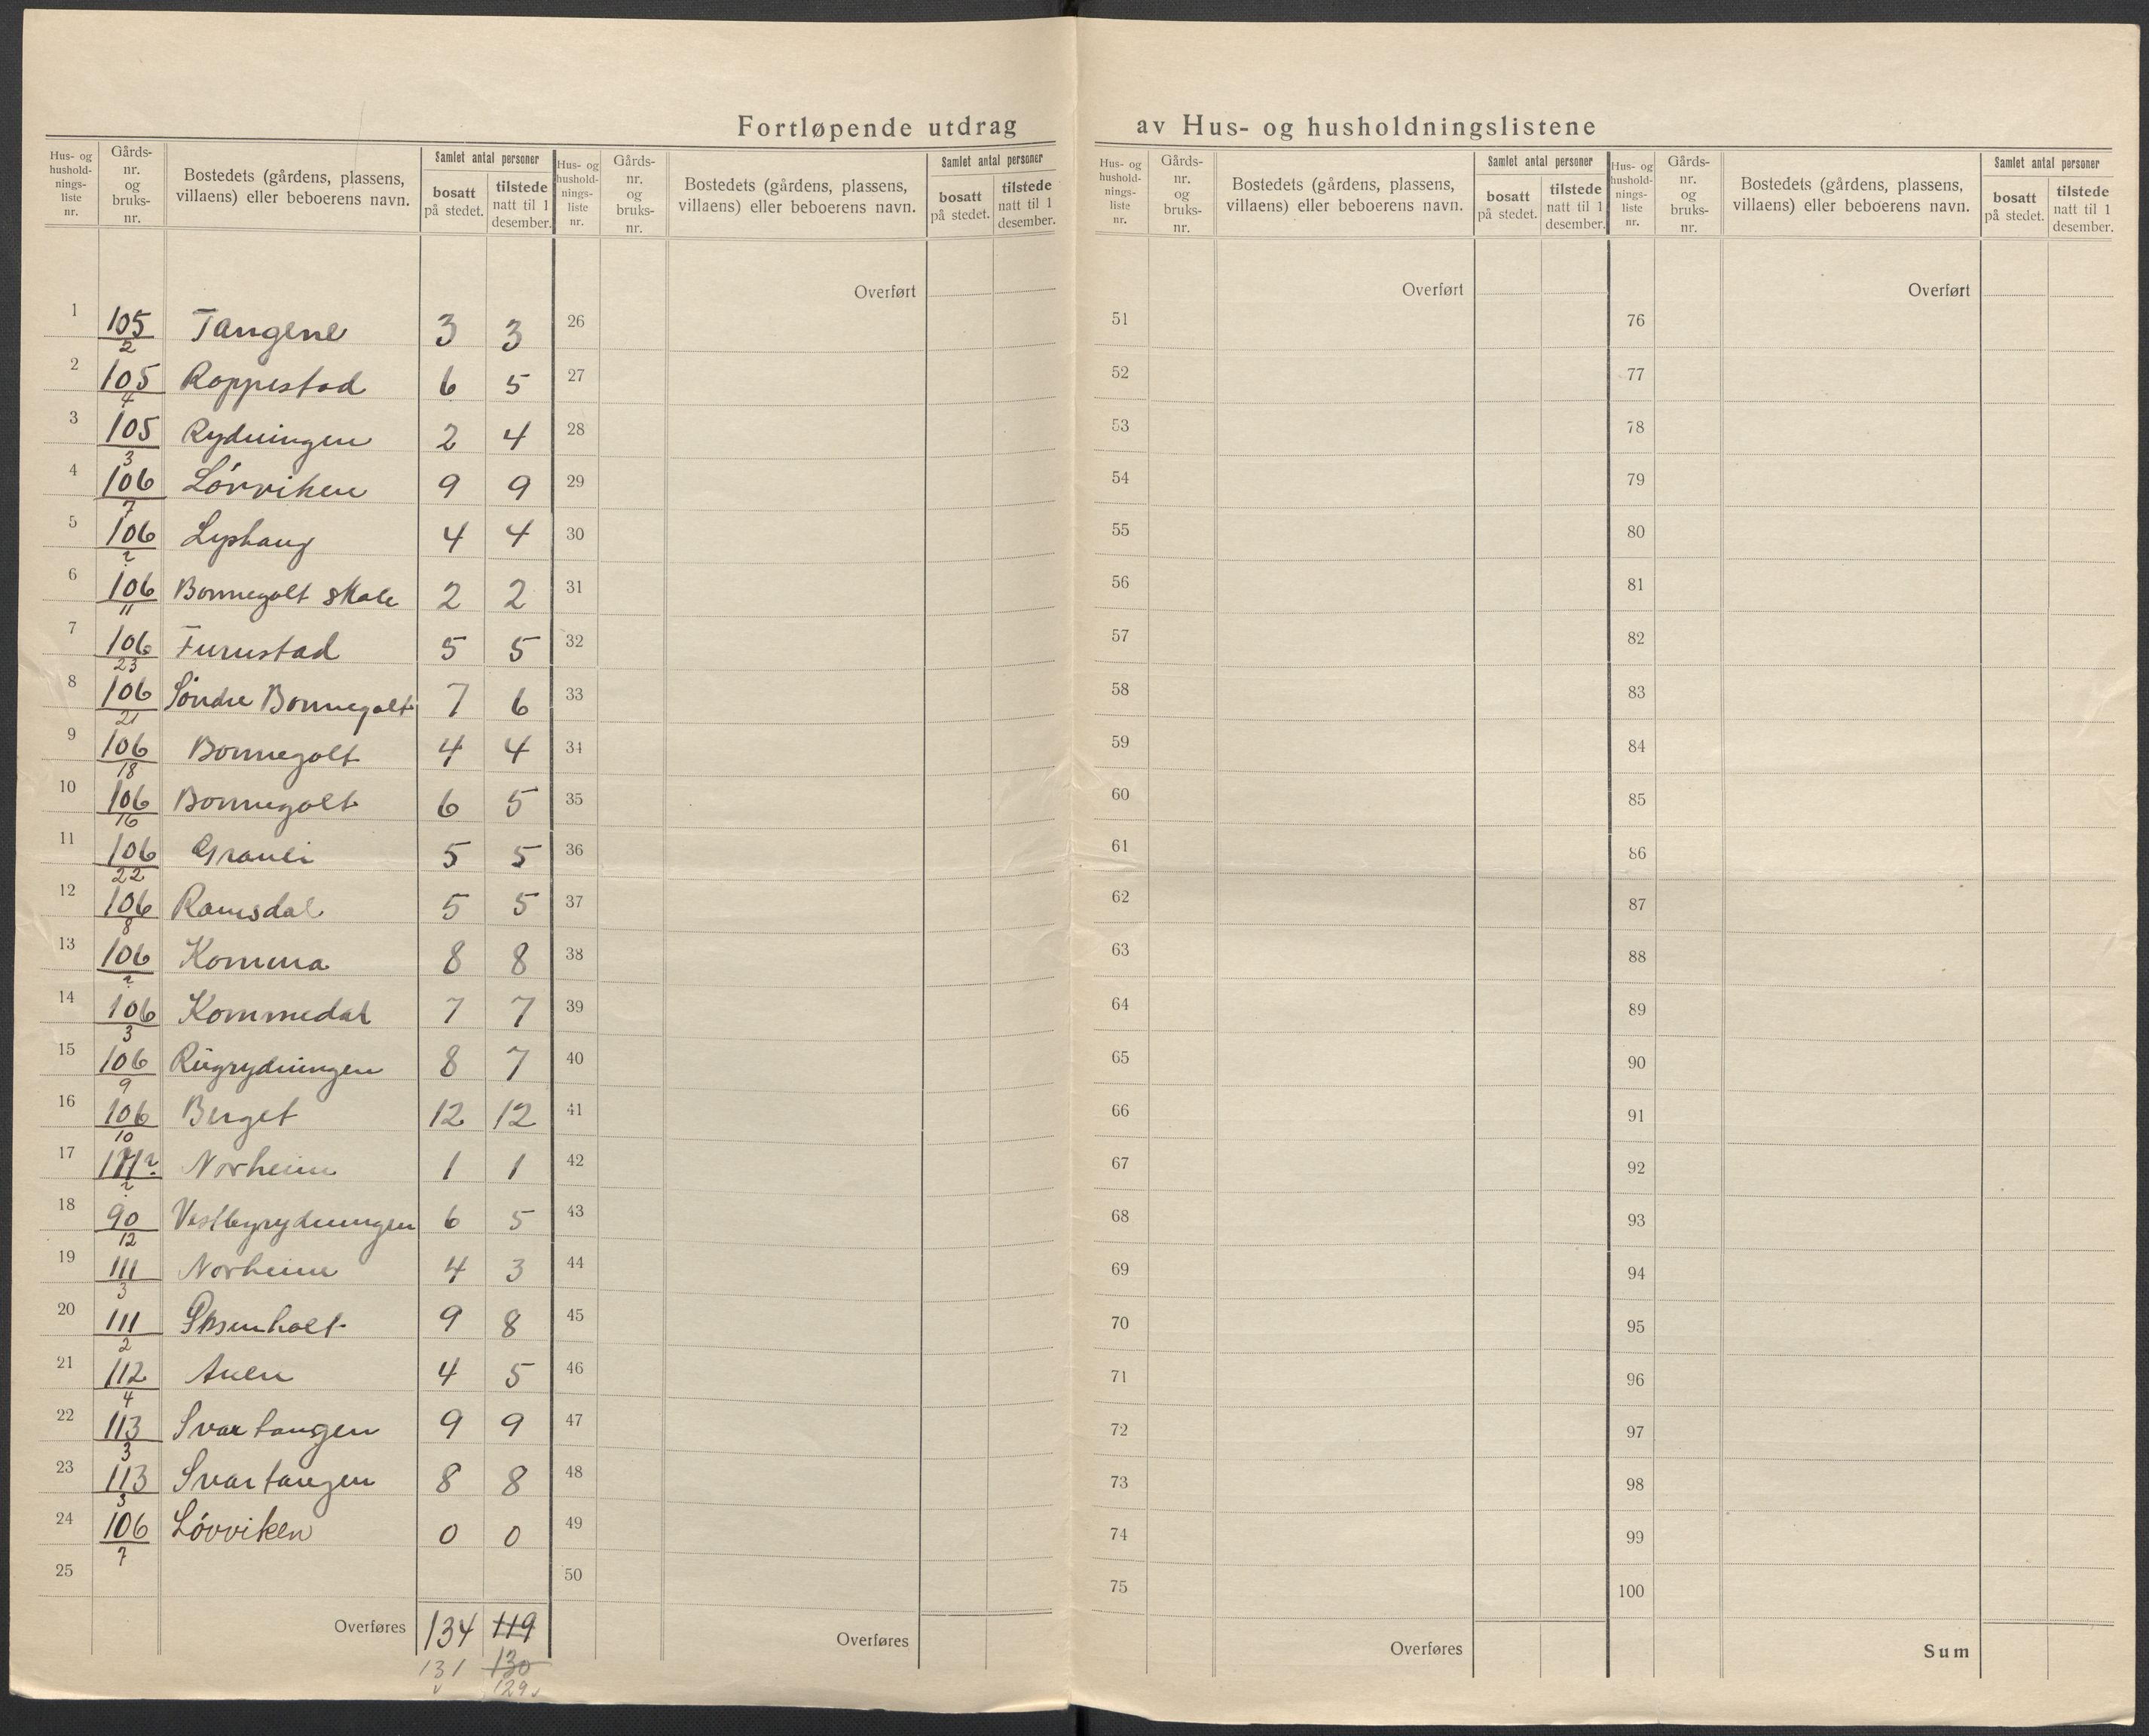 Fortløpende utdrag av Hus- og husholdningslistene
Hus- og hushold-nings-liste nr. Gårds-nr. og bruks-nr. Bostedets (gårdens, plassens, villaens) eller beboerens navn. Samlet antal personer bosatt på stedet. tilstede natt til 1 desember.
Hus- og hushold-nings-liste nr. Gårds-nr. og bruks-nr. Bostedets (gårdens, plassens, villaens) eller beboerens navn. Samlet antal personer bosatt på stedet. tilstede natt til 1 desember.
Hus- og hushold-nings-liste nr. Gårds-nr. og bruks-nr. Bostedets (gårdens, plassens, villaens) eller beboerens navn. Samlet antal personer bosatt på stedet. tilstede natt til 1 desember.
Hus- og hushold-nings-liste nr. Gårds-nr. og bruks-nr. Bostedets (gårdens, plassens, villaens) eller beboerens navn. Samlet antal personer bosatt på stedet. tilstede natt til 1 desember.
1 105/2 Tangene 3 3
2 105/4 Roppestad 6 5
3 105/3 Rydningen 2 4
4 106/7 Lövviken 9 9
5 106/? Lyshaug 4 4
6 106/11 Bonnegolt skole 2 2
7 106/23 Furustad 5 5
8 106/21 Söndre Bonnegolt 7 6
9 106/18 Bonnegolt 4 4
10 106/16 Bonnegolt 6 5
11 106/22 Granli 5 5
12 106/8 Ramsdal 5 5
13 106/? Komma 8 8
14 106/3 Kommedal 7 7
15 106/9 Rugrydningen 8 7
16 106/10 Berget 12 12
17 Norheim 1 1
18 90/12 Vestbyrydningen 6 5
19 111/3 Norheim 4 3
20 111/2 9 8
21 112/4 4 5
22 113/3 Svartangen 9 9
23 113/3 Svartangen 8 8
24 106/7 Lövviken 0 0
25
Overføres 134 119
131 130
129
Overført
26
27
28
29
30
31
32
33
34
35
36
37
38
39
40
41
42
43
44
45
46
47
48
49
50
Overføres
Overført
51
52
53
54
55
56
57
58
59
60
61
62
63
64
65
66
67
68
69
70
71
72
73
74
75
Overføres
Overført
76
77
78
79
80
81
82
83
84
85
86
87
88
89
90
91
92
93
94
95
96
97
98
99
100
Sum